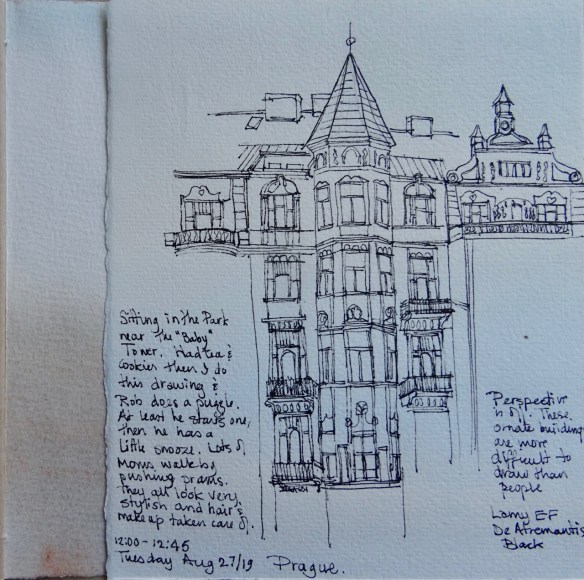 Sitting in the Park
near the "Baby"
Tower. Had tea &
Cookies then I do
this drawing &
Rob does a puzzle.
At least he starts one,
then he has a
little snooze. Lots of
Moms walk by
pushing prams.
They all look very
stylish and hair &
makeup taken care of.
12:00 - 12:45
Tuesday Aug 27/19 Prague.
Perspective
is off. These
ornate buildings
are more
difficult to
draw than
people
Lamy EF
De Atramentis
Black